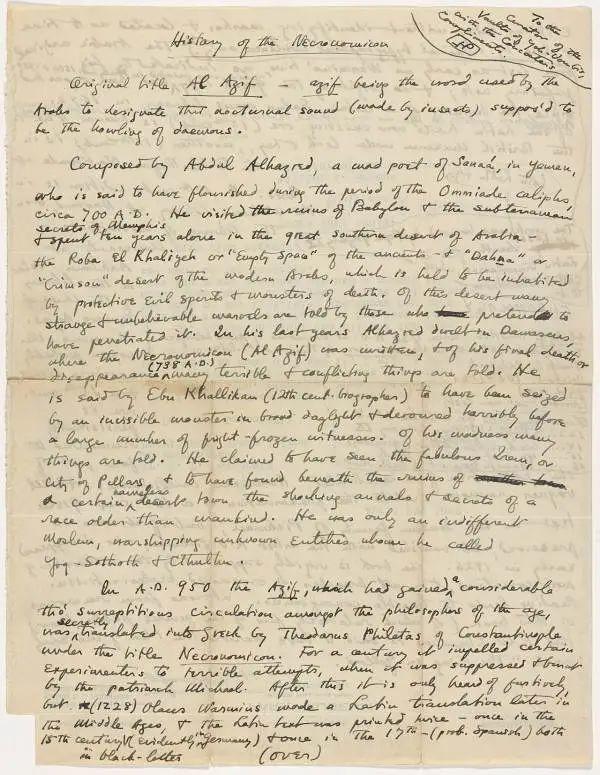 History of the Necronomicon
To the
Curator of the
Vaults of Yoh-Vombis,
with the Concoctor's
Compliments.
HP
Original title Al Azif — azif being the word used by the
Arabs to designate that nocturnal sound (made by insects) suppos'd to
be the howling of daemons.
Composed by Abdul Alhazred, a mad poet of Sanaá, in Yemen,
who is said to have flourished during the period of the Ommiade caliphs,
circa 700 A.D. He visited the ruins of Babylon & the subterranean
secrets of Memphis
& spent ten years alone in the great southern desert of Arabia —
the Roba El Khaliyeh or "Empty Space" of the ancients — & "Dahna" or
"Crimson" desert of the modern Arabs, which is held to be inhabited
by protective evil spirits & monsters of death. Of this desert many
strange & unbelievable marvels are told by those who pretend to
have penetrated it. In his last years Alhazred dwelt in Damascus,
where the Necronomicon (Al Azif) was written, & of his final death or
disappearance (738 A.D.) many terrible & conflicting things are told. He
is said by Ebn Khallikan (12th cent. biographer) to have been seized
by an invisible monster in broad daylight & devoured horribly before
a large number of fright-frozen witnesses. Of his madness many
things are told. He claimed to have seen the fabulous Irem, or
City of Pillars, & to have found beneath the ruins of
a certain nameless desert town the shocking annals & secrets of a
race older than mankind. He was only an indifferent
Moslem, worshipping unknown Entities whom he called
Yog-Sothoth & Cthulhu.
In A.D. 950 the Azif, which had gained a considerable
tho' surreptitious circulation amongst the philosophers of the age,
was secretly translated into Greek by Theodorus Philetas of Constantinople
under the title Necronomicon. For a century it impelled certain
experimenters to terrible attempts, when it was suppressed & burnt
by the patriarch Michael. After this it is only heard of furtively,
but (1228) Olaus Wormius made a Latin translation later in
the Middle Ages, & the Latin text was printed twice — once in the
15th century (evidently in Germany) & once in the 17th — (prob. Spanish) both
in black-letter
(over)